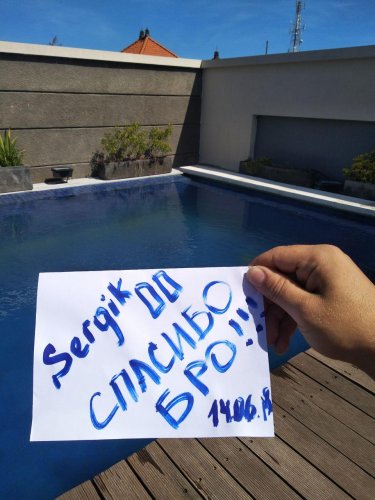 Sergik DD
СПАСИБО
БРО!!!
14.06.18